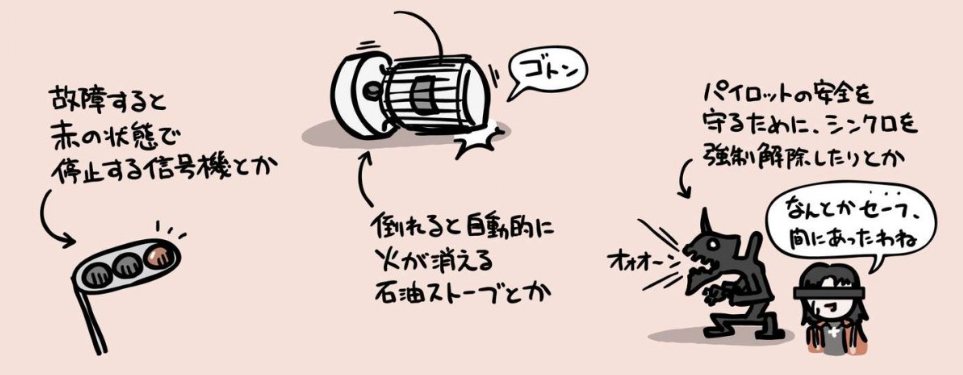 故障すると
赤の状態で
停止する信号機とか
ゴトン
倒れると自動的に
火が消える
石油ストーブとか
パイロットの安全を
守るために、シンクロを
強制解除したりとか
オォオーン
なんとかセーフ、
間にあったわね